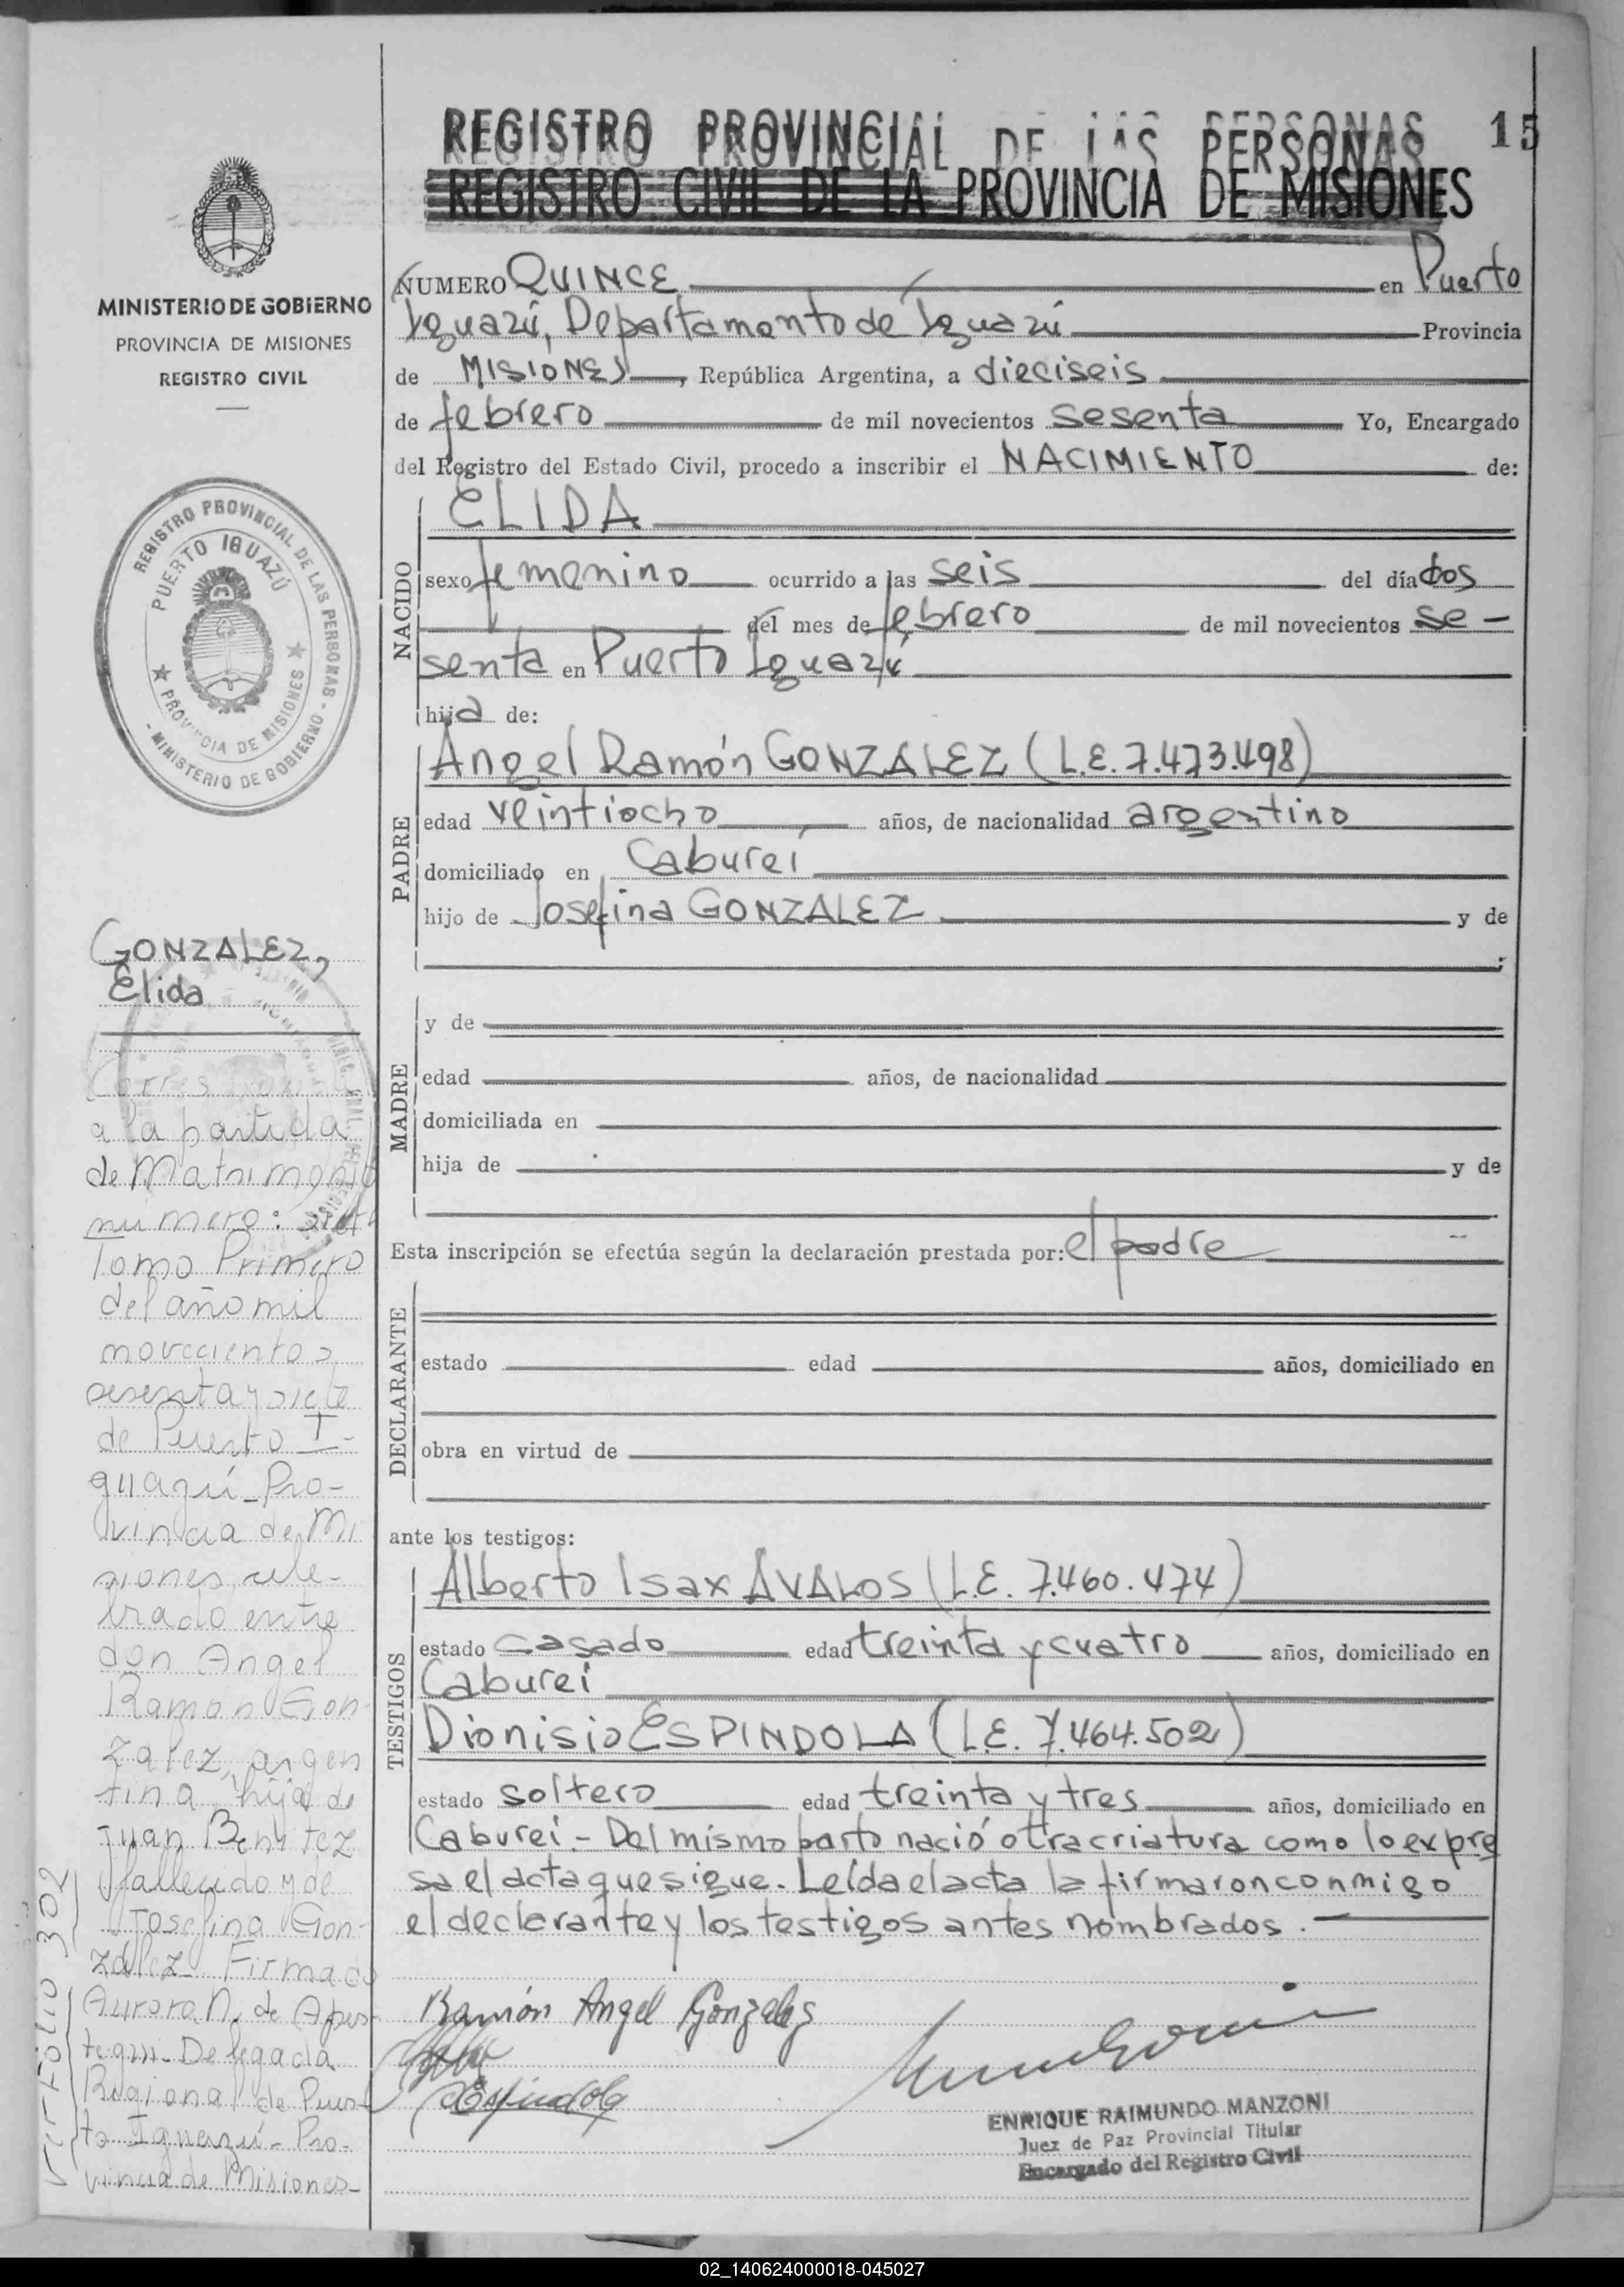 REGISTRO PROVINCIAL DE LAS PERSONAS 15
REGISTRO CIVIL DE LA PROVINCIA DE MISIONES
MINISTERIO DE GOBIERNO
PROVINCIA DE MISIONES
REGISTRO CIVIL
NUMERO QUINCE en Puerto
Iguazú, Departamento de Iguazú Provincia
de MISIONES, República Argentina, a dieciseis
de febrero de mil novecientos sesenta Yo, Encargado
del Registro del Estado Civil, procedo a inscribir el NACIMIENTO de:
REGISTRO PROVINCIAL DE LAS PERSONAS - MINISTERIO DE GOBIERNO -
PUERTO IGUAZÚ
★ PROVINCIA DE MISIONES ★
NACIDO
ELIDA
sexo femenino ocurrido a las seis del día dos
del mes de febrero de mil novecientos se-
senta en Puerto Iguazú
hija de:
PADRE
Angel Ramón GONZALEZ (L.E. 7.473.498)
edad veintiocho años, de nacionalidad argentino
domiciliado en Caburei
hijo de Josefina GONZALEZ y de
;
MADRE
y de
edad años, de nacionalidad
domiciliada en
hija de y de
Esta inscripción se efectúa según la declaración prestada por: el padre
DECLARANTE
estado edad años, domiciliado en
obra en virtud de
ante los testigos:
TESTIGOS
Alberto Isax AVALOS (L.E. 7.460.474)
estado casado edad treinta y cuatro años, domiciliado en
Caburei
Dionisio ESPINDOLA (L.E. 7.464.502)
estado soltero edad treinta y tres años, domiciliado en
Caburei - Del mismo parto nació otra criatura como lo expre
sa el acta que sigue. Leída el acta la firmaron conmigo
el declarante y los testigos antes nombrados.
Ramón Angel Gonzalez
Espindola
ENRIQUE RAIMUNDO MANZONI
Juez de Paz Provincial Titular
Encargado del Registro Civil
GONZALEZ,
Elida
a la partida
de Matrimonio
numero:
Tomo Primero
del año mil
novecientos
sesenta y siete
de Puerto I-
guazú - Pro-
vincia de Mi
siones, cele-
brado entre
don Angel
Ramón Gon-
zalez, argen
tina, hija de
Juan Benitez
fallecido y de
Josefina Gon-
zález. Firmado
Aurora N. de Apes-
tegui - Delegada
Regional de Puer-
to Iguazú - Pro-
vincia de Misiones-
Ver Folio 302
02_140624000018-045027